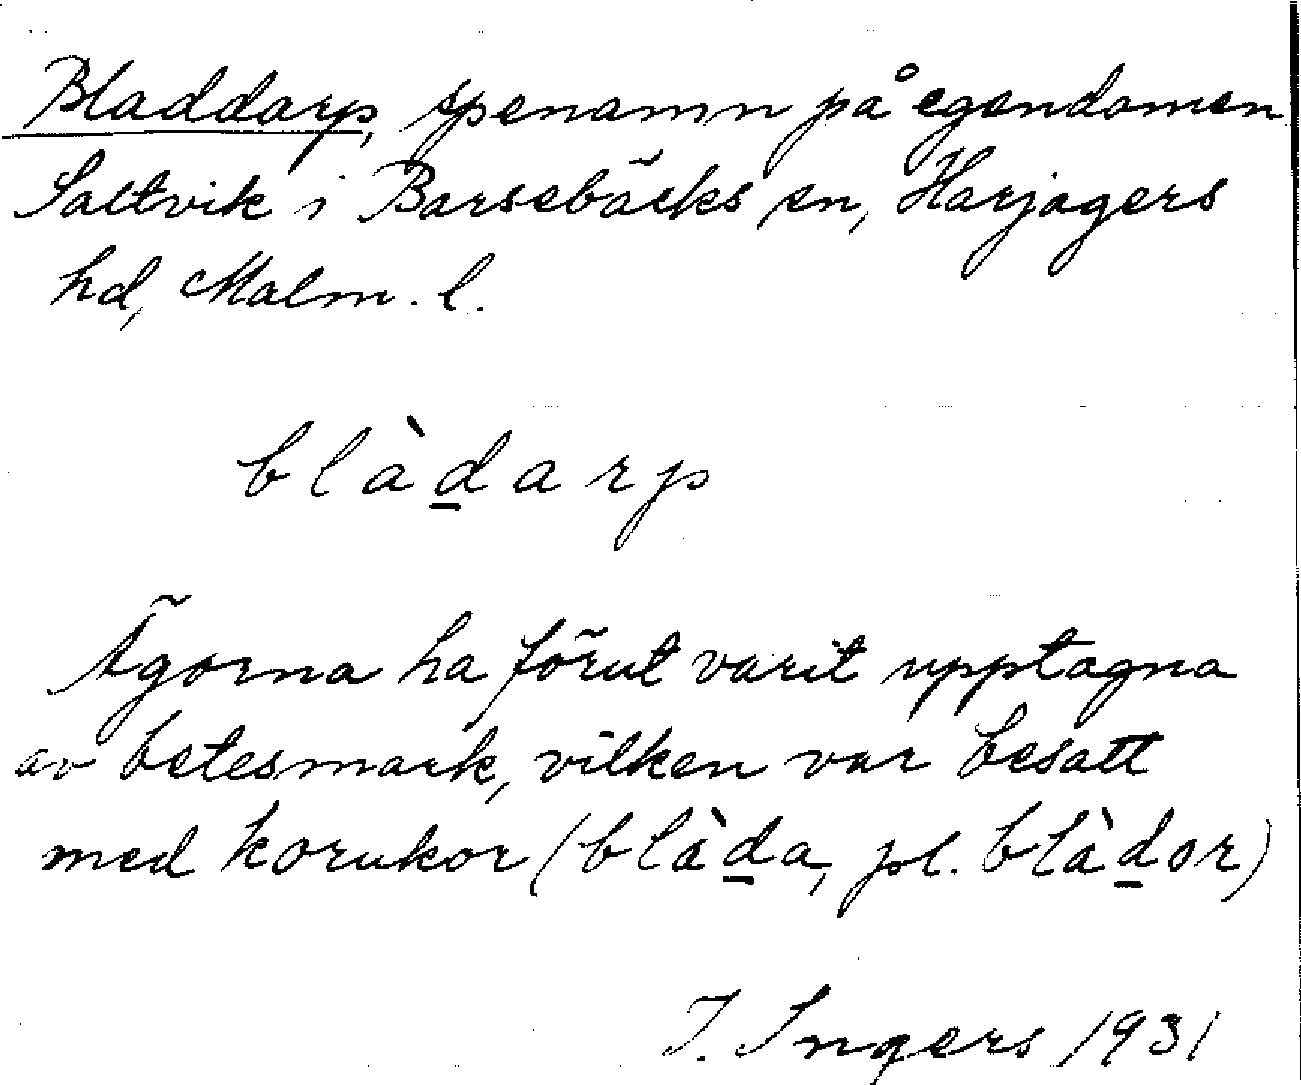 Bladdarp, spenamn på egendomen
Saltvik i Barsebäcks sn, Harjagers
hd, Malm. l.
blàd̲arp
Ägorna ha förut varit upptagna
av betesmark, vilken var besatt
med korukor (blàd̲a, pl. blàd̲or)
I. Ingers 1931